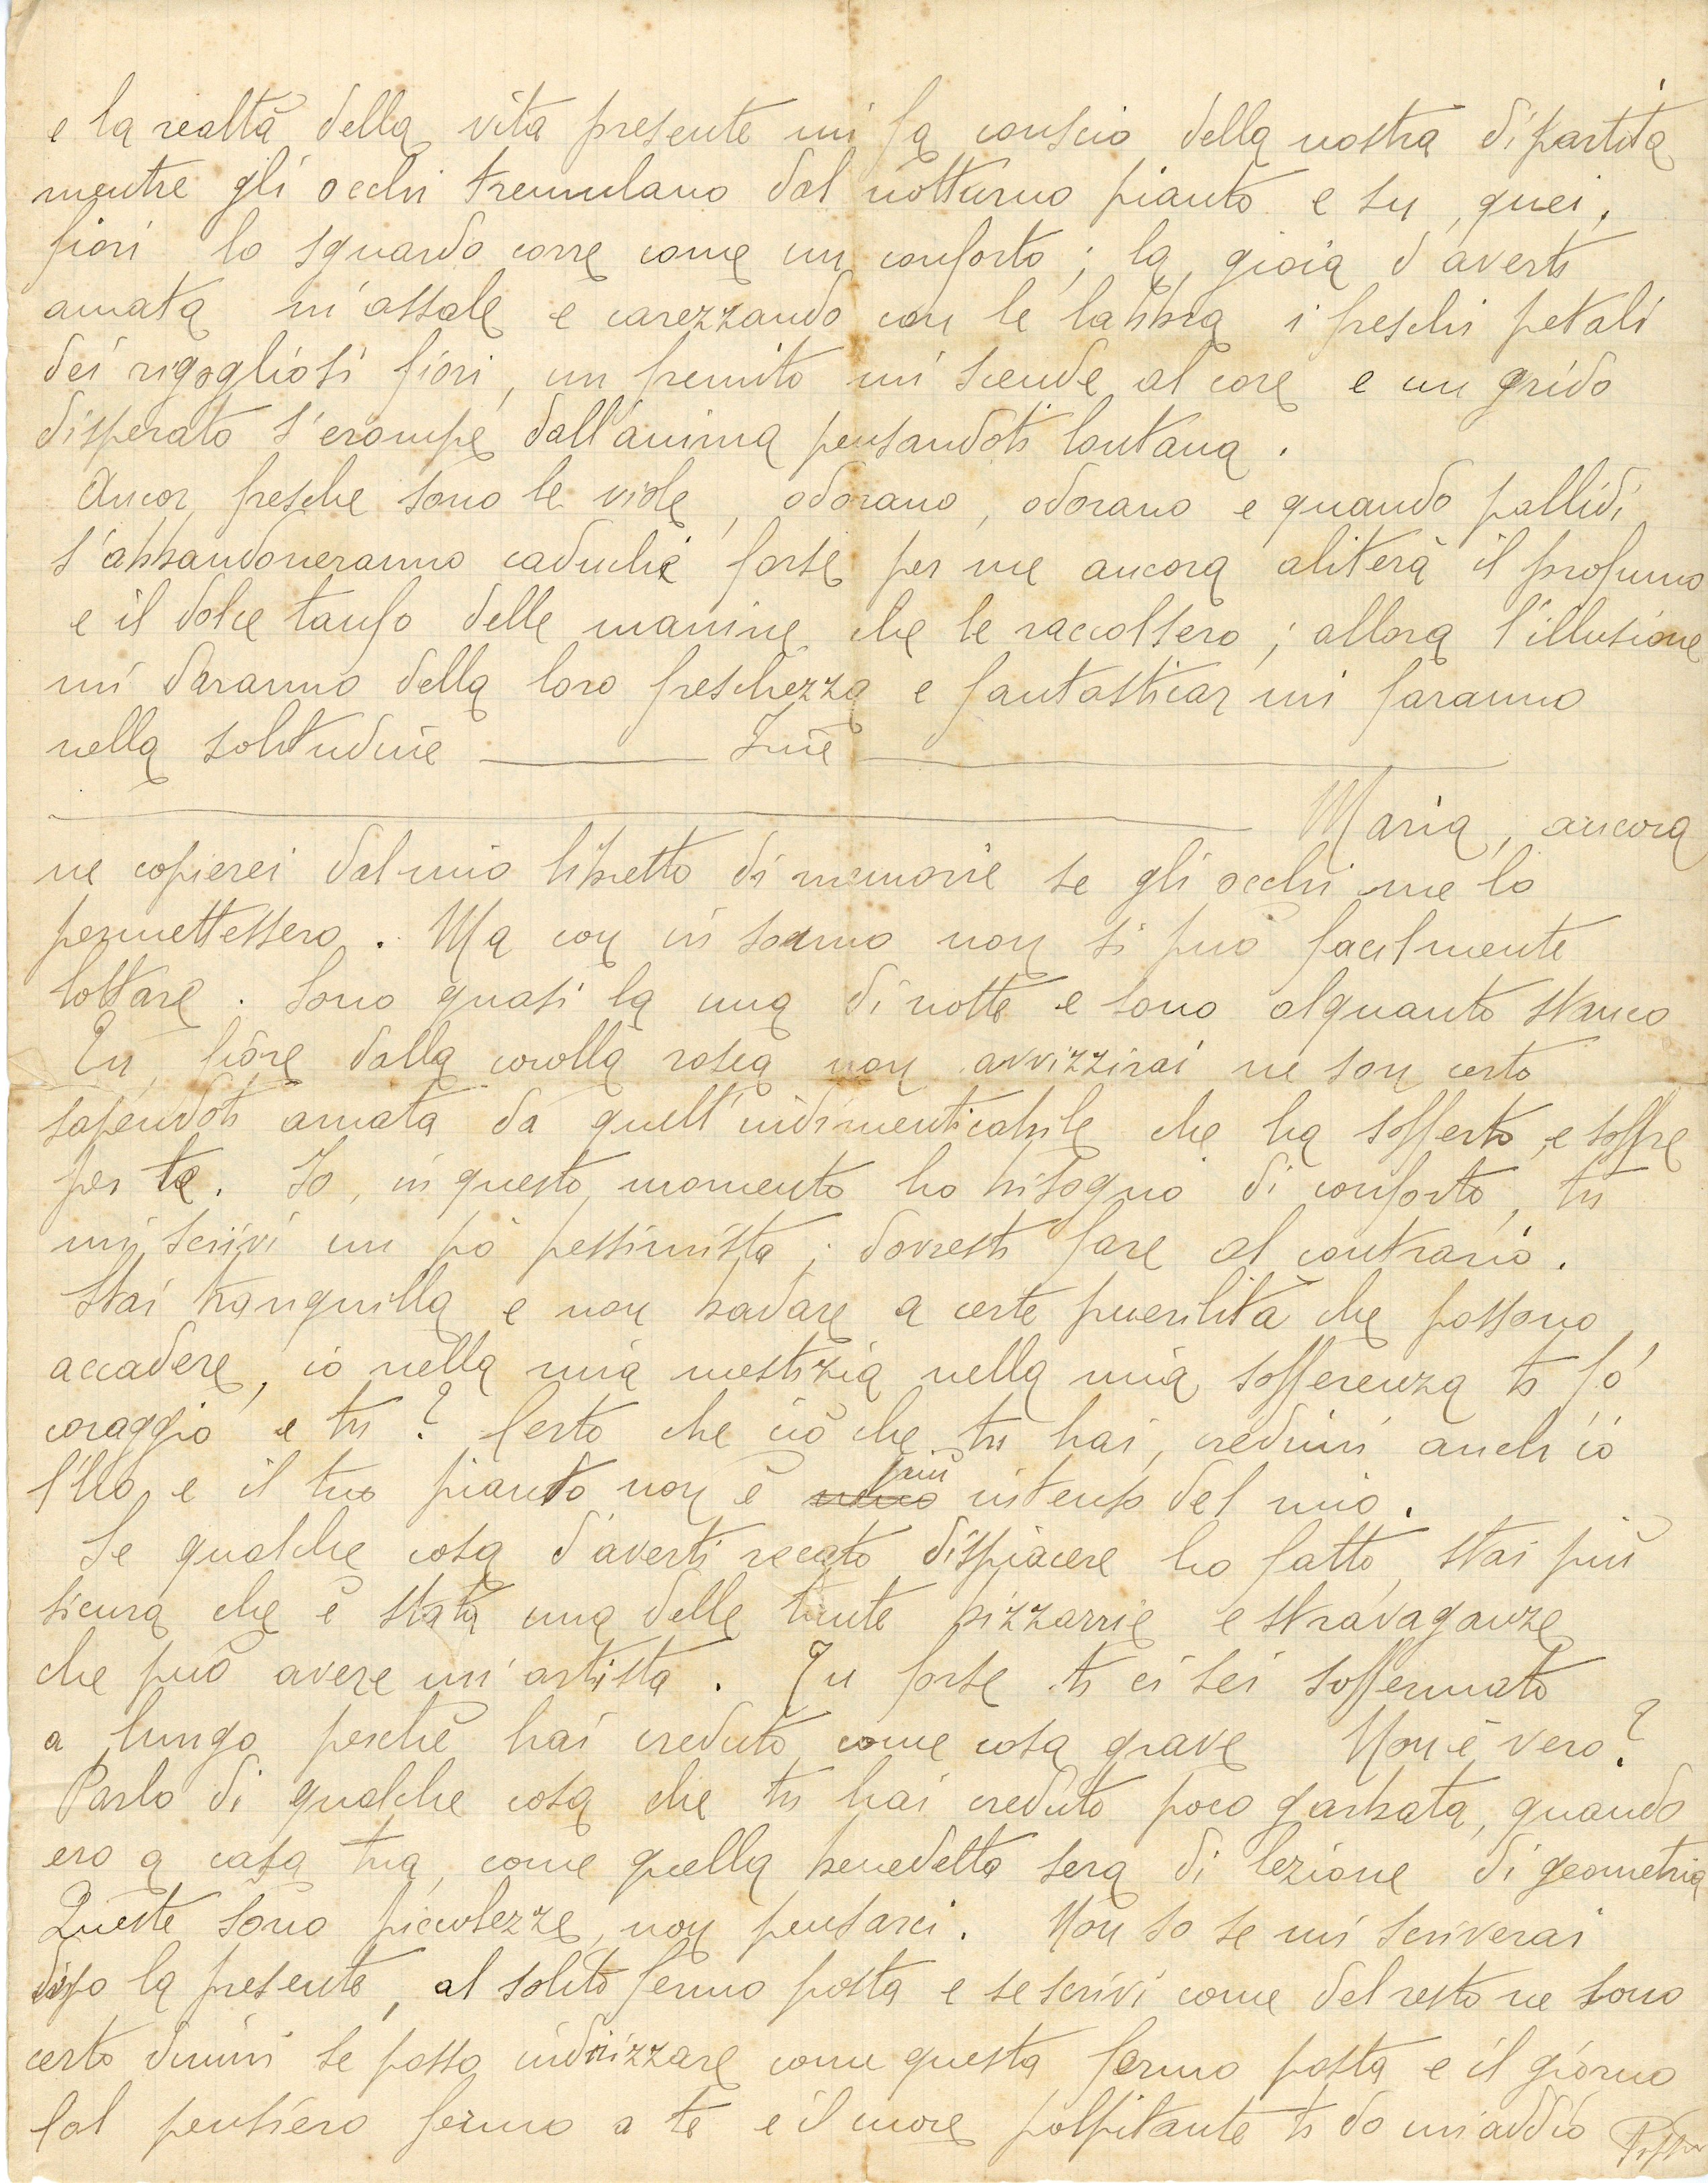 e la realtà della vita presente mi fa conscio della nostra dipartita
mentre gli occhi tremulano dal notturno pianto e su quei,
fiori lo sguardo corre come un conforto; la gioia d'averti
amata m'assale e carezzando con le labbra i freschi petali
dei rigogliosi fiori, un fremito mi scende al core e un grido
disperato s'erompe dall'anima pensandoti lontana.
Ancor fresche sono le viole, odorano, odorano e quando pallidi
s'abbandoneranno caduche forse per me ancora aliterà il profumo
e il dolce tanfo delle manine che le raccolsero; allora l'illusione
mi daranno della loro freschezza e fantasticar mi faranno
nella solitudine ——— Fine ———
——— Maria, ancora
ne copierei dal mio libretto di memorie se gli occhi me lo
permettessero. Ma con il sonno non si può facilmente
lottare. Sono quasi la una di notte e sono alquanto stanco
Tu, fiore dalla corolla rosea non avvizzirai ne son certo
sapendoti amata da quell'indimenticabile che ha sofferto e soffre
per te. Io, in questo momento ho bisogno di conforto, tu
mi scrivi un pò pessimista; dovresti fare al contrario.
Stai tranquilla e non badare a certe puerilità che possono
accadere, io nella mia mestizia nella mia sofferenza ti fò
coraggio e tu? Certo che ciò che tu hai, credimi anch'io
l'ho e il tuo pianto non è più intenso del mio.
Se qualche cosa d'averti recato dispiacere ho fatto, stai più
sicura che è stata una delle tante bizzarrie e stravaganze
che può avere un'artista. Tu forse ti ci sei soffermato
a lungo perchè hai creduto come cosa grave Non è vero?
Parlo di qualche cosa che tu hai creduto poco garbata, quando
ero a casa tua, come quella benedetta sera di lezione di geometria
Queste sono piccolezze, non pensarci. Non so se mi scriverai
dopo la presente, al solito fermo posta e se scrivi come del resto ne sono
certo dimmi se posso indirizzare come questa fermo posta e il giorno
Col pensiero fermo a te e il core palpitante ti do un addio